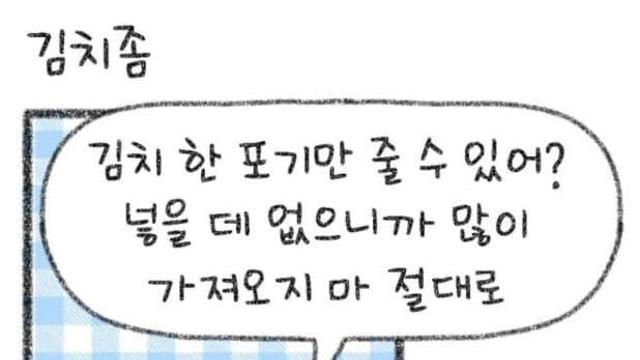 김치좀
김치 한 포기만 줄 수 있어?
넣을 데 없으니까 많이
가져오지 마 절대로